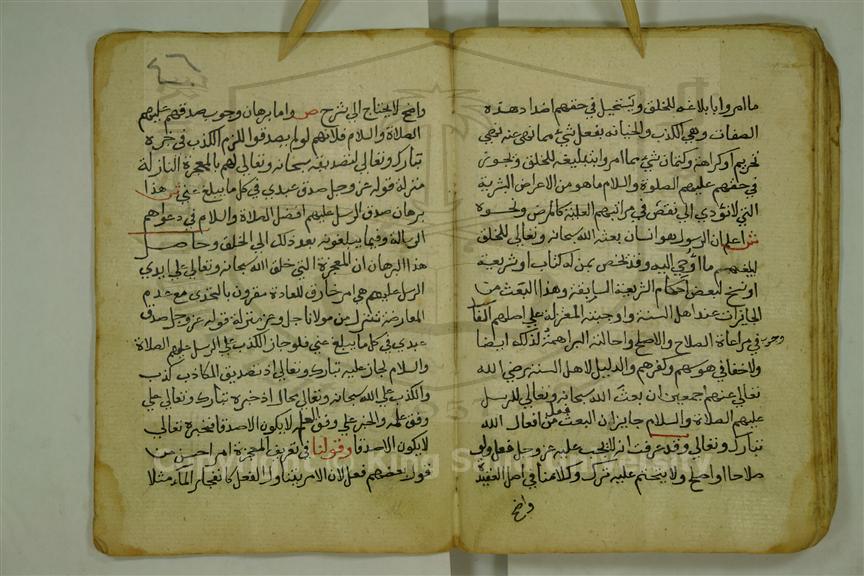 ما امروا بابلاغه للخلق ويستحيل في حقهم اضداد هذه
الصفات وهي الكذب والخيانة بفعل شيء مما نهى عنه نهي
تحريم او كراهة وكتمان شيء مما امروا بتبليغه للخلق ويجوز
في حقهم عليهم الصلوة والسلام ما هو من الاعراض البشرية
التي لا تؤدي الى نقص في مراتبهم العلية كالمرض ونحوه
ش اعلم ان الرسول هو انسان بعثه الله سبحانه وتعالى للخلق
ليبلغهم ما اوحي اليه وقد يخص بمن له كتاب او شريعة
او نسخ لبعض احكام الشريعة السابقة وهذا البعث من
الجايزات عند اهل السنة واوجبته المعتزلة على اصلهم الفا
وجوب في مراعاة الصلاح والاصلح واحالته البراهمة لذلك ايضا
ولا خفا في هوسهم وكفرهم والدليل لاهل السنة رضي الله
تعالى عنهم اجمعين ان بعث الله سبحانه وتعالى للرسل
عليهم الصلاة والسلام جايز ان البعث فعل من افعال الله
تبارك وتعالى وقد عرفت انه لا يجب عليه عز وجل فعل ولو
صلاحا او اصلح ولا يتحتم عليه ترك وكلامنا في اصل العقيدة
واضح
واضح لا يحتاج الى شرح ص واما برهان وجوب صدقهم عليهم
الصلاة والسلام فلانهم لو لم يصدقوا للزم الكذب في خبره
تبارك وتعالى لتصديقه سبحانه وتعالى لهم بالمعجزة النازلة
منزلة قوله عز وجل صدق عبدي في كل ما يبلغ عني ش هذا
برهان صدق الرسل عليهم افضل الصلاة والسلام في دعواهم
الرسالة وفيما يبلغونه بعد ذلك الى الخلق وحاصل
هذا البرهان ان المعجزة التي خلق الله سبحانه وتعالى على ايدي
الرسل عليهم هي امر خارق للعادة مقرون بالتحدي مع عدم
المعارضة تتنزل من مولانا جل وعز منزلة قوله عز وجل صدق
عبدي في كل ما يبلغ عني فلو جاز الكذب على الرسل عليهم الصلاة
والسلام لجاز عليه تبارك وتعالى اذ تصديق الكاذب كذب
والكذب على الله سبحانه وتعالى محال اذ خبره تبارك وتعالى على
وفق علمه والخبر على وفق العلم لا يكون الا صدقا فخبره تعالى
لا يكون الا صدقا وقولنا في تعريف المعجزة امر احسن من
قول بعضهم فعل لان الامر يتناول الفعل كانفجار الماء مثلا